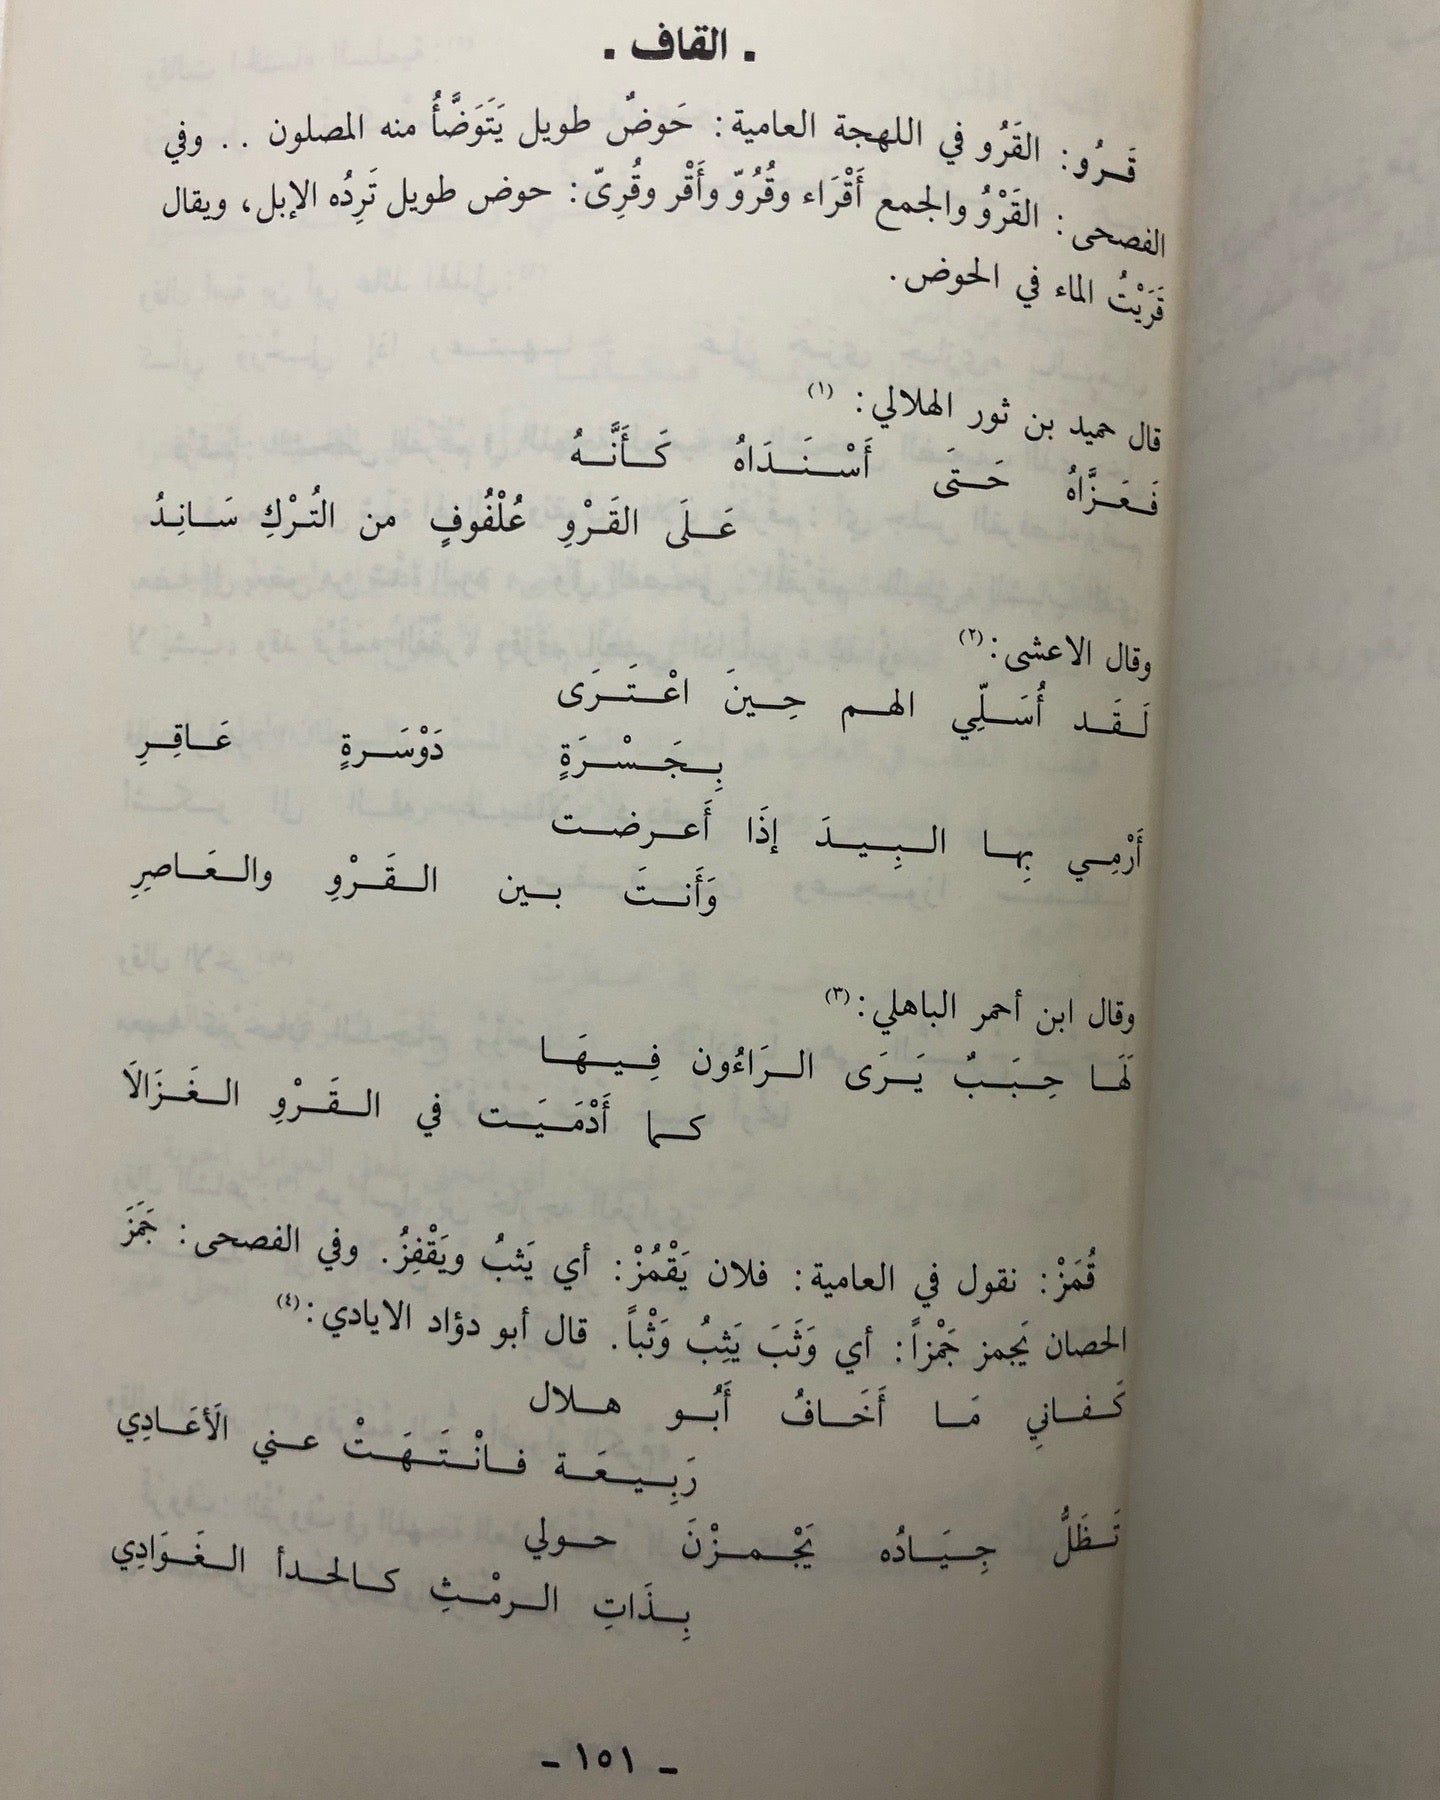 . القاف .
قَـرُو: القَرُو في اللهجة العامية: حَوضٌ طويل يَتَوَضَّأُ منه المصلون . . وفي
الفصحى: القَرْوُ والجمع أَقْرَاء وقُرُوّ وأَقْر وقُرِىّ: حوض طويل تَرِدُه الإبل، ويقال
قَرَيْتُ الماء في الحوض.
قال حميد بن ثور الهلالي: (١)
فَـعَـزَّاهُ حَـتَى أَسْـنَـدَاهُ كَـأَنَّـهُ
عَـلَى القَـرْوِ عُلْفُوفٍ من التُـرْكِ سَـانِـدُ
وقال الاعشى: (٢)
لَـقَـد أُسَـلِّي الهـم حِـينَ اعْـتَـرَى
بِـجَـسْـرَةٍ دَوْسَـرةٍ عَـاقِـرِ
أَرْمِـي بِهـا الـبِـيـدَ إذَا أَعـرضـت
وَأَنـتَ بـين الـقَـرْوِ والـعَـاصِرِ
وقال ابن أحمر الباهلي: (٣)
لَهَـا حِـبَـبٌ يَـرَى الـرَاءُون فِـيـهَـا
كـما أَدْمَـيَـت في الـقَـرْوِ الـغَـزَالَا
قُمَزْ: نقول في العامية: فلان يَقْمُزْ: أي يَثبُ ويَقْفِزُ. وفي الفصحى: جَمَزَ
الحصان يَجمز جَمْزاً: أي وَثَبَ يَثِبُ وَثْباً. قال أبو دؤاد الايادي: (٤)
كَـفـانِي مَـا أَخَـافُ أَبُـو هـلال
رَبِـيـعَـة فـانْـتَـهَـتْ عـني الَأعَـادِي
تَـظَلُّ جِـيَـادُه يَجْـمـزْنَ حـولي
بِـذَاتِ الـرمْـثِ كـالحدأ الـغَـوَادِي
- ١٥١ -